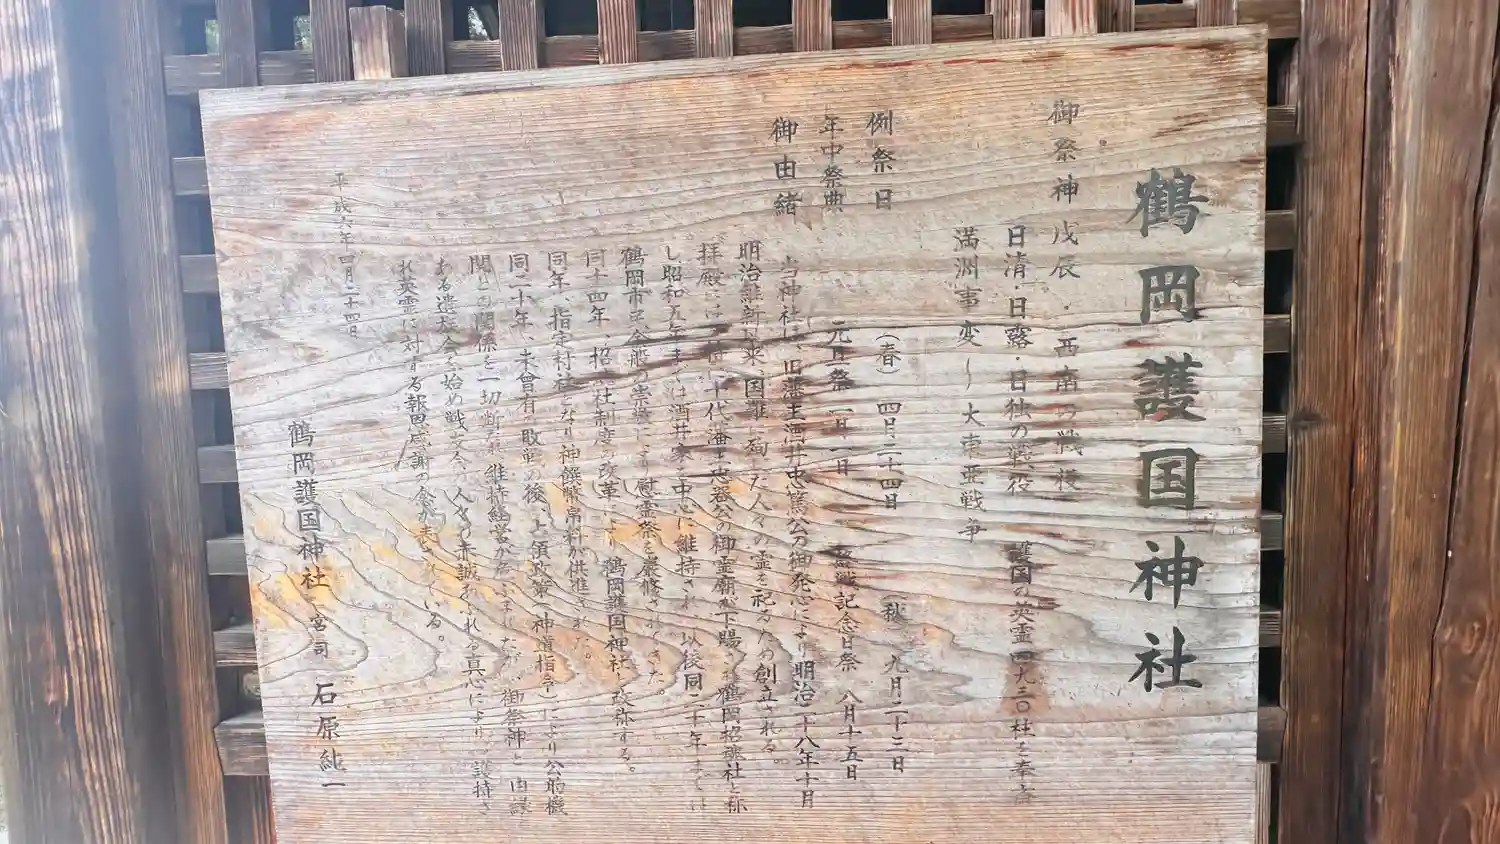 鶴岡護国神社
御祭神 戊辰・西南の戦役
日清・日露・日独の戦役 護国の英霊四九三〇柱を奉斎
満洲事変〜大東亜戦争
例祭日 (春) 四月二十四日 (秋) 九月二十三日
年中祭典 元旦祭 一月一日 終戦記念日祭 八月十五日
御由緒
当神社は、旧藩主酒井忠篤公の御発心により明治十八年十月
明治維新以来、国難に殉じた人々の霊を祀るため創立される。
拝殿には 十代藩主忠器公の御霊廟が下賜され鶴岡招魂社と称
し昭和五年までは酒井家を中心に維持され、以後同二十年までは
鶴岡市民全般の崇敬により慰霊祭を厳修されてきた。
同十四年、招魂社制度の改革により鶴岡護国神社と改称する。
同年、指定村社となり神饌幣帛料が供進された。
同二十年、未曾有の敗戦の後、占領政策(神道指令)により公的機
関との関係を一切断たれ維持経営が危ぶまれたが、御祭神と由縁
ある遺族会を始め戦友会、人々の赤誠あふれる真心により、護持さ
れ英霊に対する報恩感謝の念を表されている。
平成六年四月二十四日
鶴岡護国神社 宮司 石原純一